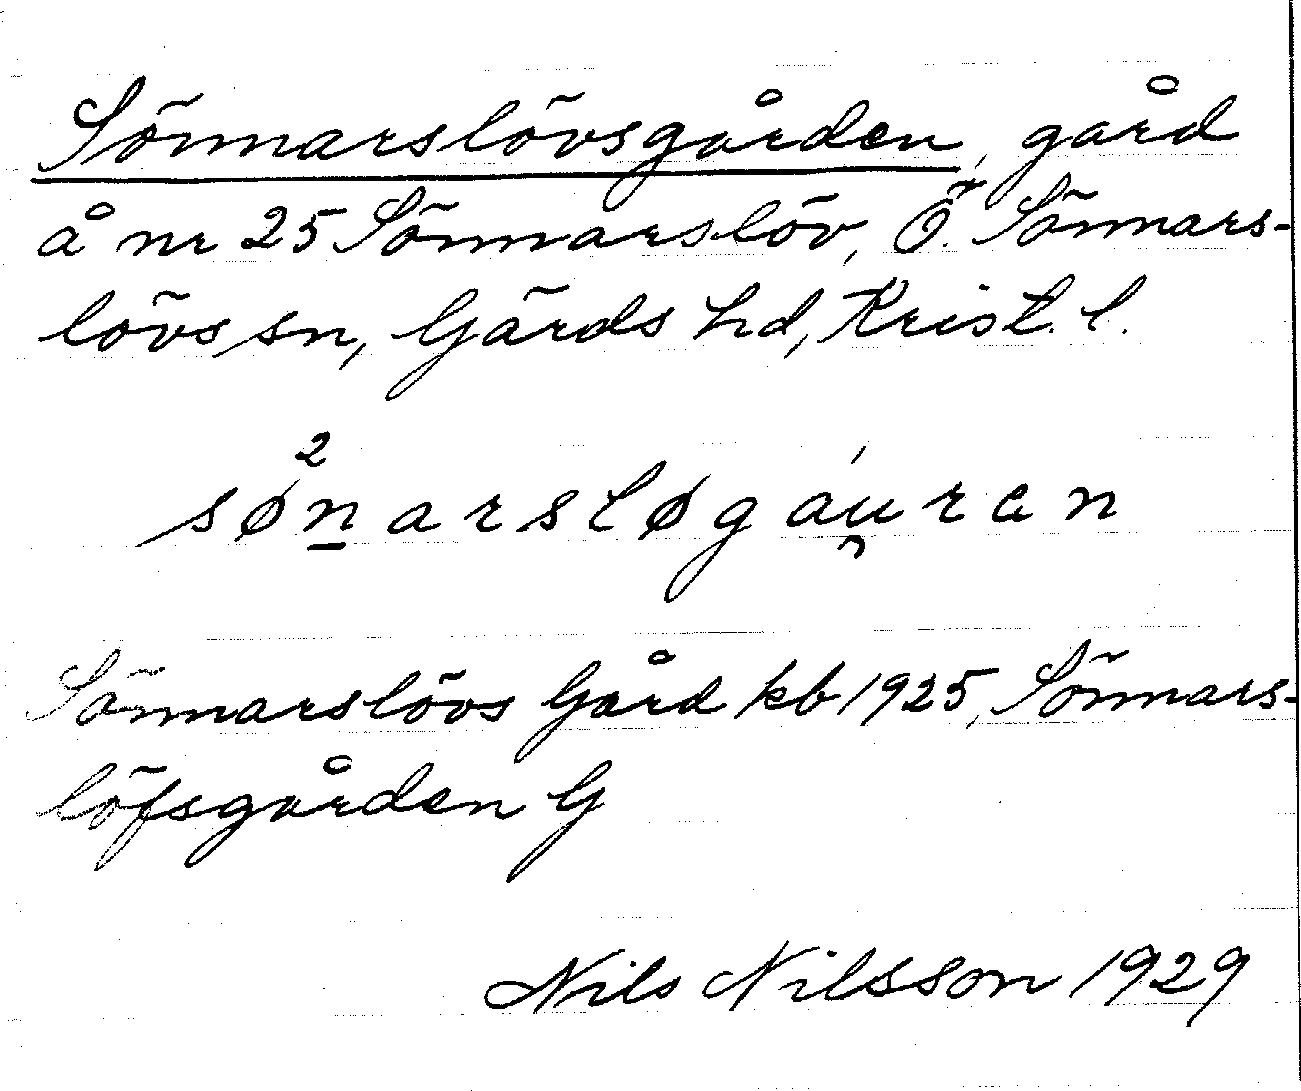 Sönnarslövsgården, gård
å nr 25 Sönnarslöv, Ö. Sönnars-
lövs sn, Gärds hd, Krist. l.
sø²n̠arsløgáu̯ran
Sönnarslövs Gård kb 1925, Sönnars-
löfsgården G
Nils Nilsson 1929